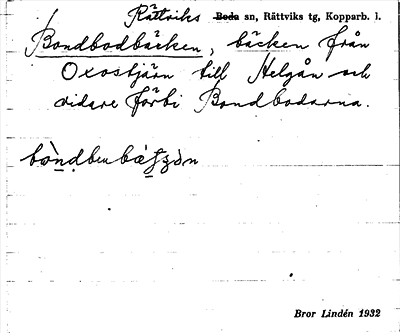 Rättviks Boda sn, Rättviks tg, Kopparb. l.
Bondbodbäcken, bäcken från
Oxostjärn till Helgån och
vidare förbi Bondbodarna.
Bror Lindén 1932